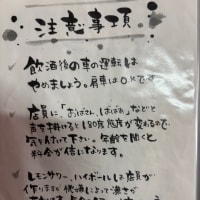 注意事項
飲酒後の車の運転は
やめましょう。肩車はOKです
店員に「おばさん、ばばあ」などと
声を掛けると180度態度が変るので
気を付けて下さい。年齢を聞くと
料金が倍になります。
レモンサワー、ハイボールは店員が
作りますが、機嫌によって濃さが